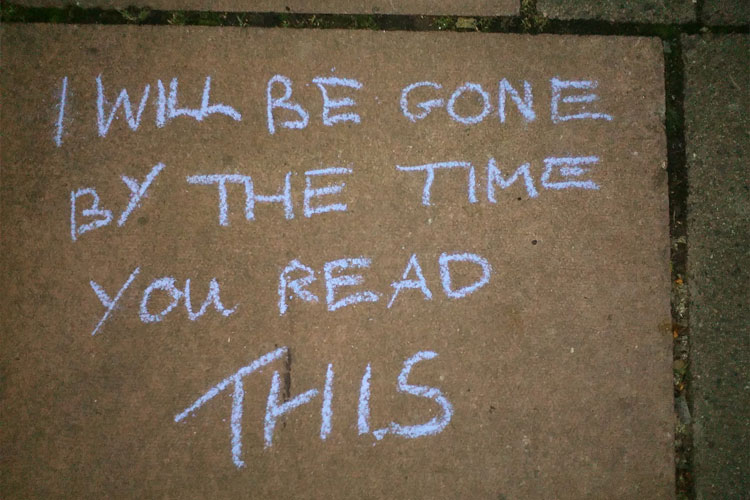 I WILL BE GONE
BY THE TIME
YOU READ
THIS